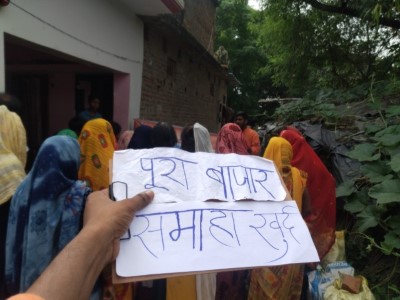 पूरा बाजार
समाहा खुर्द